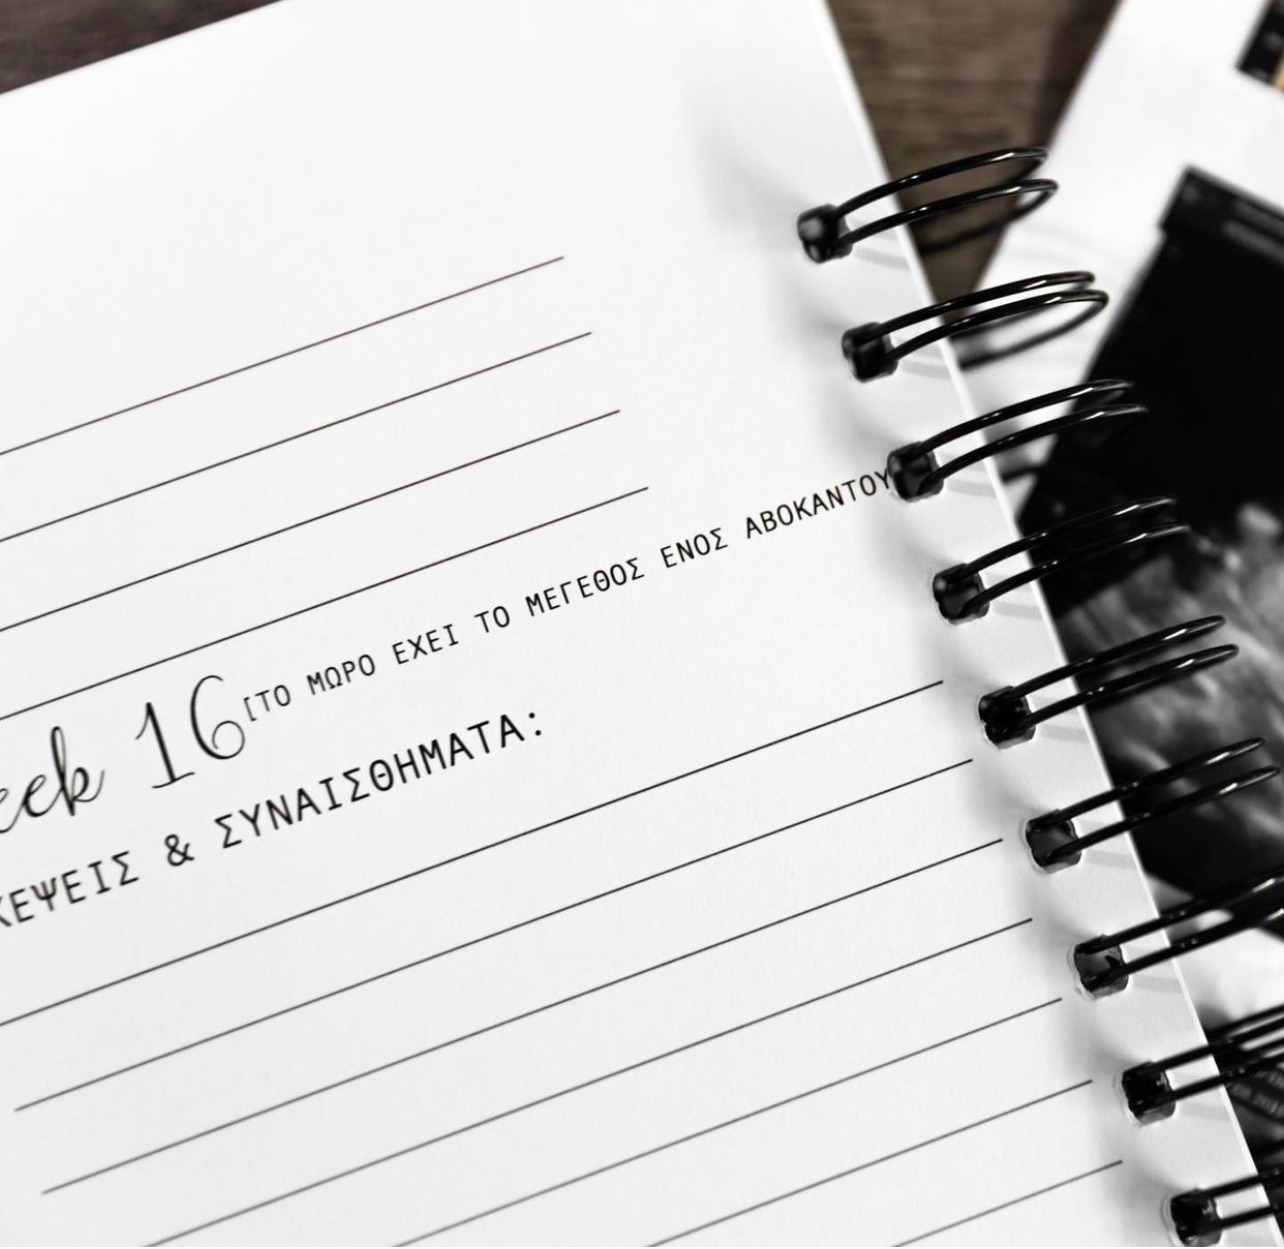 eek 16 [ΤΟ ΜΩΡΟ ΕΧΕΙ ΤΟ ΜΕΓΕΘΟΣ ΕΝΟΣ ΑΒΟΚΑΝΤΟΥ
ΚΕΨΕΙΣ & ΣΥΝΑΙΣΘΗΜΑΤΑ: